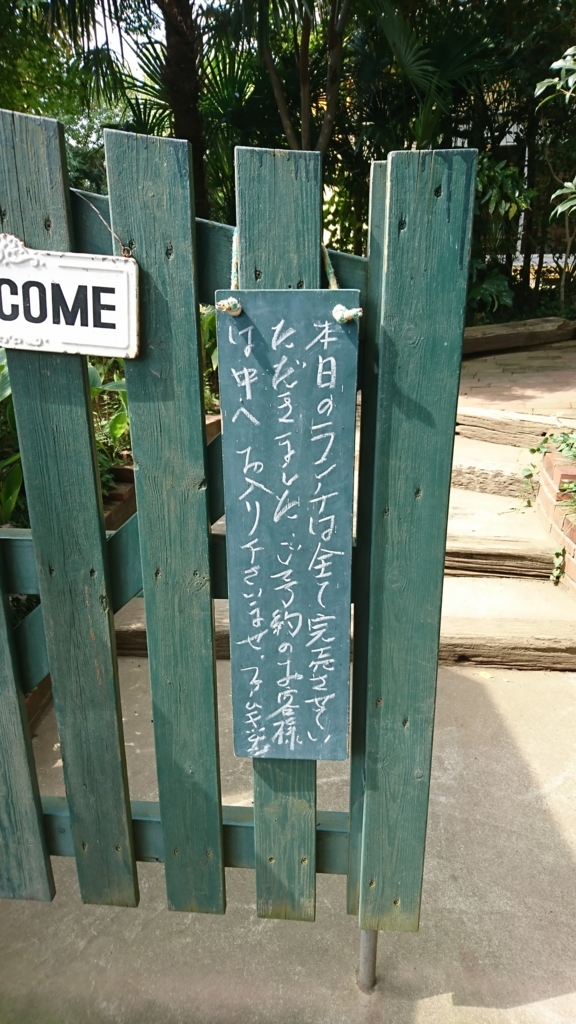 COME
本日のランチは全て完売させてい
ただきました。ご予約のお客様
は中へお入り下さいませ。ファーム